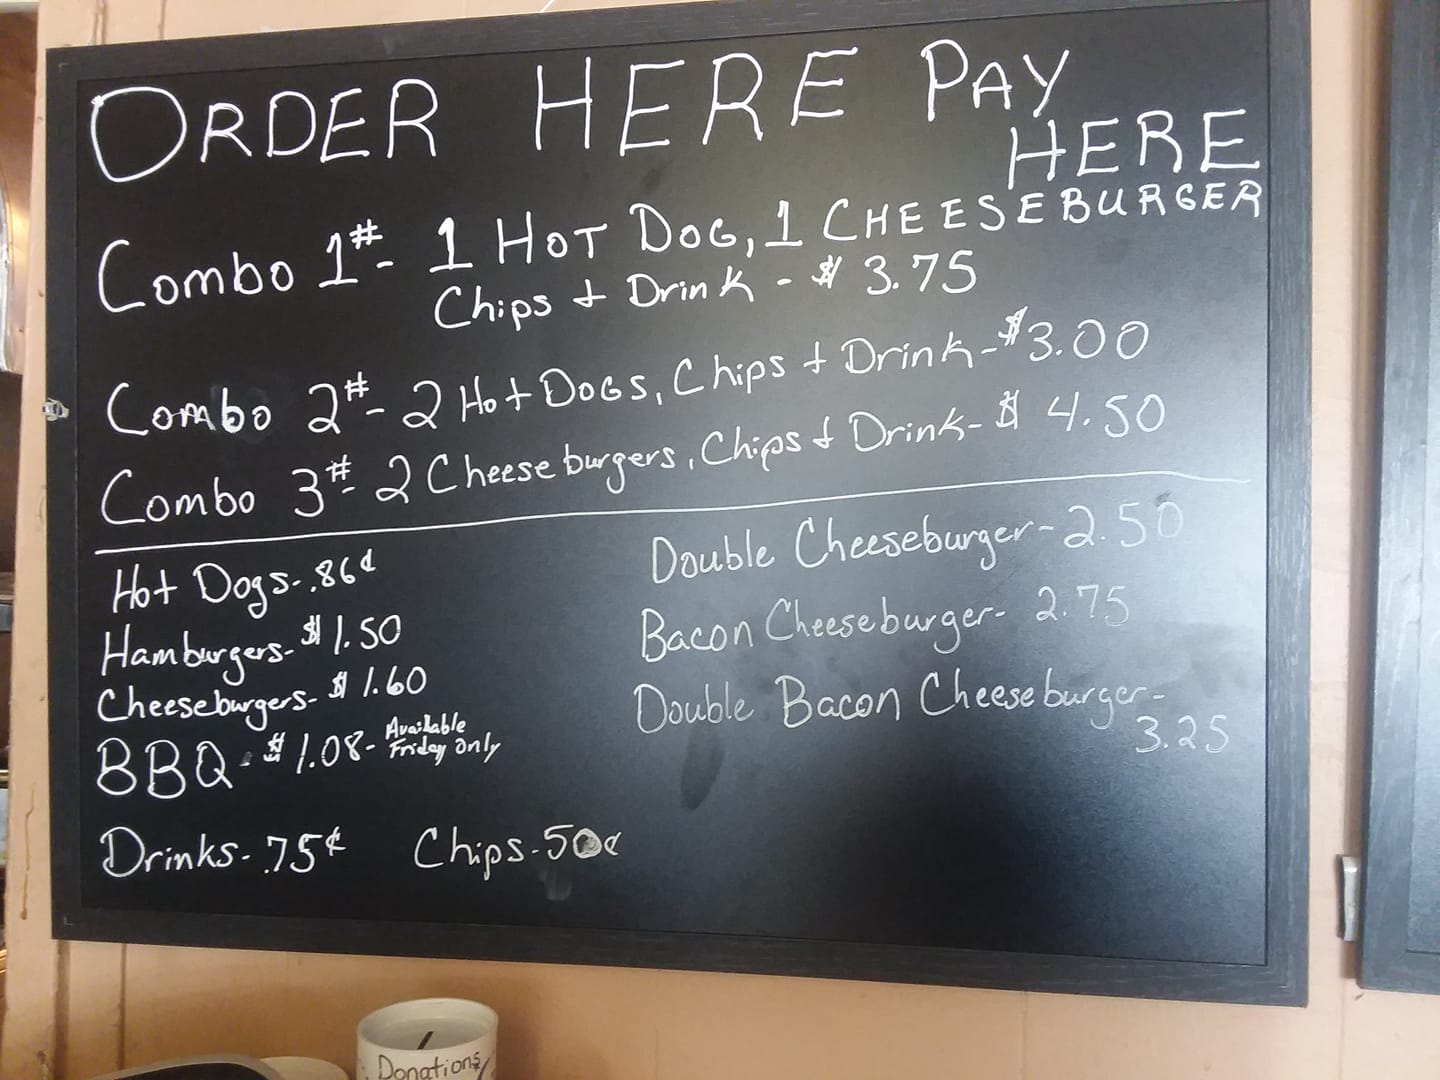 ORDER HERE PAY
HERE
Combo 1#- 1 HOT DOG, 1 CHEESEBURGER
Chips + Drink - $ 3.75
Combo 2#- 2 Hot DOGS, Chips + Drink-$3.00
Combo 3#- 2 Cheeseburgers, Chips + Drink-$ 4.50
Hot Dogs-.86¢
Hamburgers-$ 1.50
Cheeseburgers-$ 1.60
BBQ-$ 1.08- Available
Friday Only
Drinks-.75¢ Chips-50¢
Double Cheeseburger-2.50
Bacon Cheeseburger- 2.75
Double Bacon Cheeseburger-
3.25
Donations